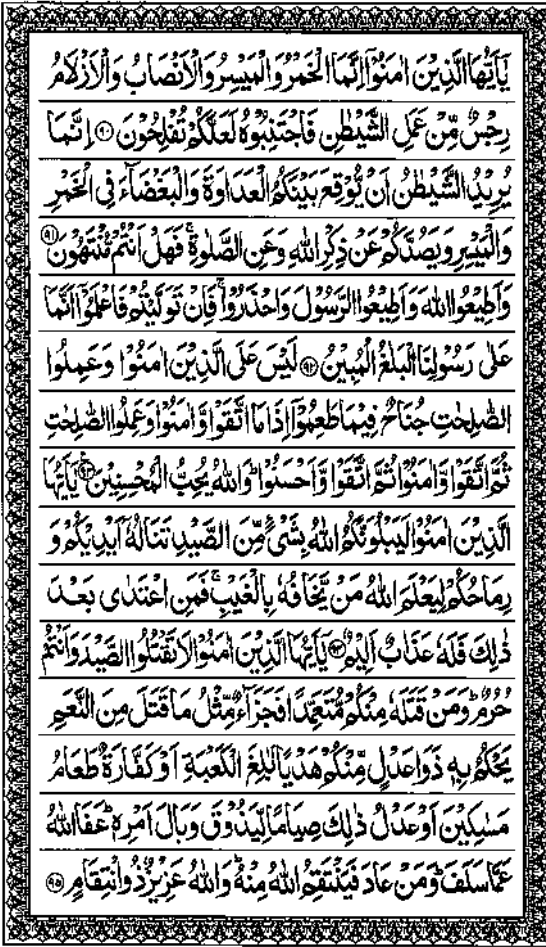 يٰۤاَيُّهَا الَّذِيْنَ اٰمَنُوْۤا اِنَّمَا الْخَمْرُ وَالْمَيْسِرُ وَالْاَنْصَابُ وَالْاَزْلَامُ
رِجْسٌ مِّنْ عَمَلِ الشَّيْطٰنِ فَاجْتَنِبُوْهُ لَعَلَّكُمْ تُفْلِحُوْنَ ﴿۹۰﴾ اِنَّمَا
يُرِيْدُ الشَّيْطٰنُ اَنْ يُّوْقِعَ بَيْنَكُمُ الْعَدَاوَةَ وَالْبَغْضَآءَ فِى الْخَمْرِ
وَالْمَيْسِرِ وَيَصُدَّكُمْ عَنْ ذِكْرِ اللّٰهِ وَعَنِ الصَّلٰوةِ ۚ فَهَلْ اَنْتُمْ مُّنْتَهُوْنَ ﴿۹۱﴾
وَاَطِيْعُوا اللّٰهَ وَاَطِيْعُوا الرَّسُوْلَ وَاحْذَرُوْا ۚ فَاِنْ تَوَلَّيْتُمْ فَاعْلَمُوْۤا اَنَّمَا
عَلٰى رَسُوْلِنَا الْبَلٰغُ الْمُبِيْنُ ﴿۹۲﴾ لَيْسَ عَلَى الَّذِيْنَ اٰمَنُوْا وَعَمِلُوا
الصّٰلِحٰتِ جُنَاحٌ فِيْمَا طَعِمُوْۤا اِذَا مَا اتَّقَوْا وَّاٰمَنُوْا وَعَمِلُوا الصّٰلِحٰتِ
ثُمَّ اتَّقَوْا وَّاٰمَنُوْا ثُمَّ اتَّقَوْا وَّاَحْسَنُوْا ؕ وَاللّٰهُ يُحِبُّ الْمُحْسِنِيْنَ ﴿۹۳﴾ يٰۤاَيُّهَا
الَّذِيْنَ اٰمَنُوْا لَيَبْلُوَنَّكُمُ اللّٰهُ بِشَىْءٍ مِّنَ الصَّيْدِ تَنَالُهٗۤ اَيْدِيْكُمْ وَ
رِمَاحُكُمْ لِيَعْلَمَ اللّٰهُ مَنْ يَّخَافُهٗ بِالْغَيْبِ ۚ فَمَنِ اعْتَدٰى بَعْدَ
ذٰلِكَ فَلَهٗ عَذَابٌ اَلِيْمٌ ﴿۹۴﴾ يٰۤاَيُّهَا الَّذِيْنَ اٰمَنُوْا لَا تَقْتُلُوا الصَّيْدَ وَاَنْتُمْ
حُرُمٌ ؕ وَمَنْ قَتَلَهٗ مِنْكُمْ مُّتَعَمِّدًا فَجَزَآءٌ مِّثْلُ مَا قَتَلَ مِنَ النَّعَمِ
يَحْكُمُ بِهٖ ذَوَا عَدْلٍ مِّنْكُمْ هَدْيًۢا بٰلِغَ الْكَعْبَةِ اَوْ كَفَّارَةٌ طَعَامُ
مَسٰكِيْنَ اَوْ عَدْلُ ذٰلِكَ صِيَامًا لِّيَذُوْقَ وَبَالَ اَمْرِهٖ ؕ عَفَا اللّٰهُ
عَمَّا سَلَفَ ؕ وَمَنْ عَادَ فَيَنْتَقِمُ اللّٰهُ مِنْهُ ؕ وَاللّٰهُ عَزِيْزٌ ذُو انْتِقَامٍ ﴿۹۵﴾